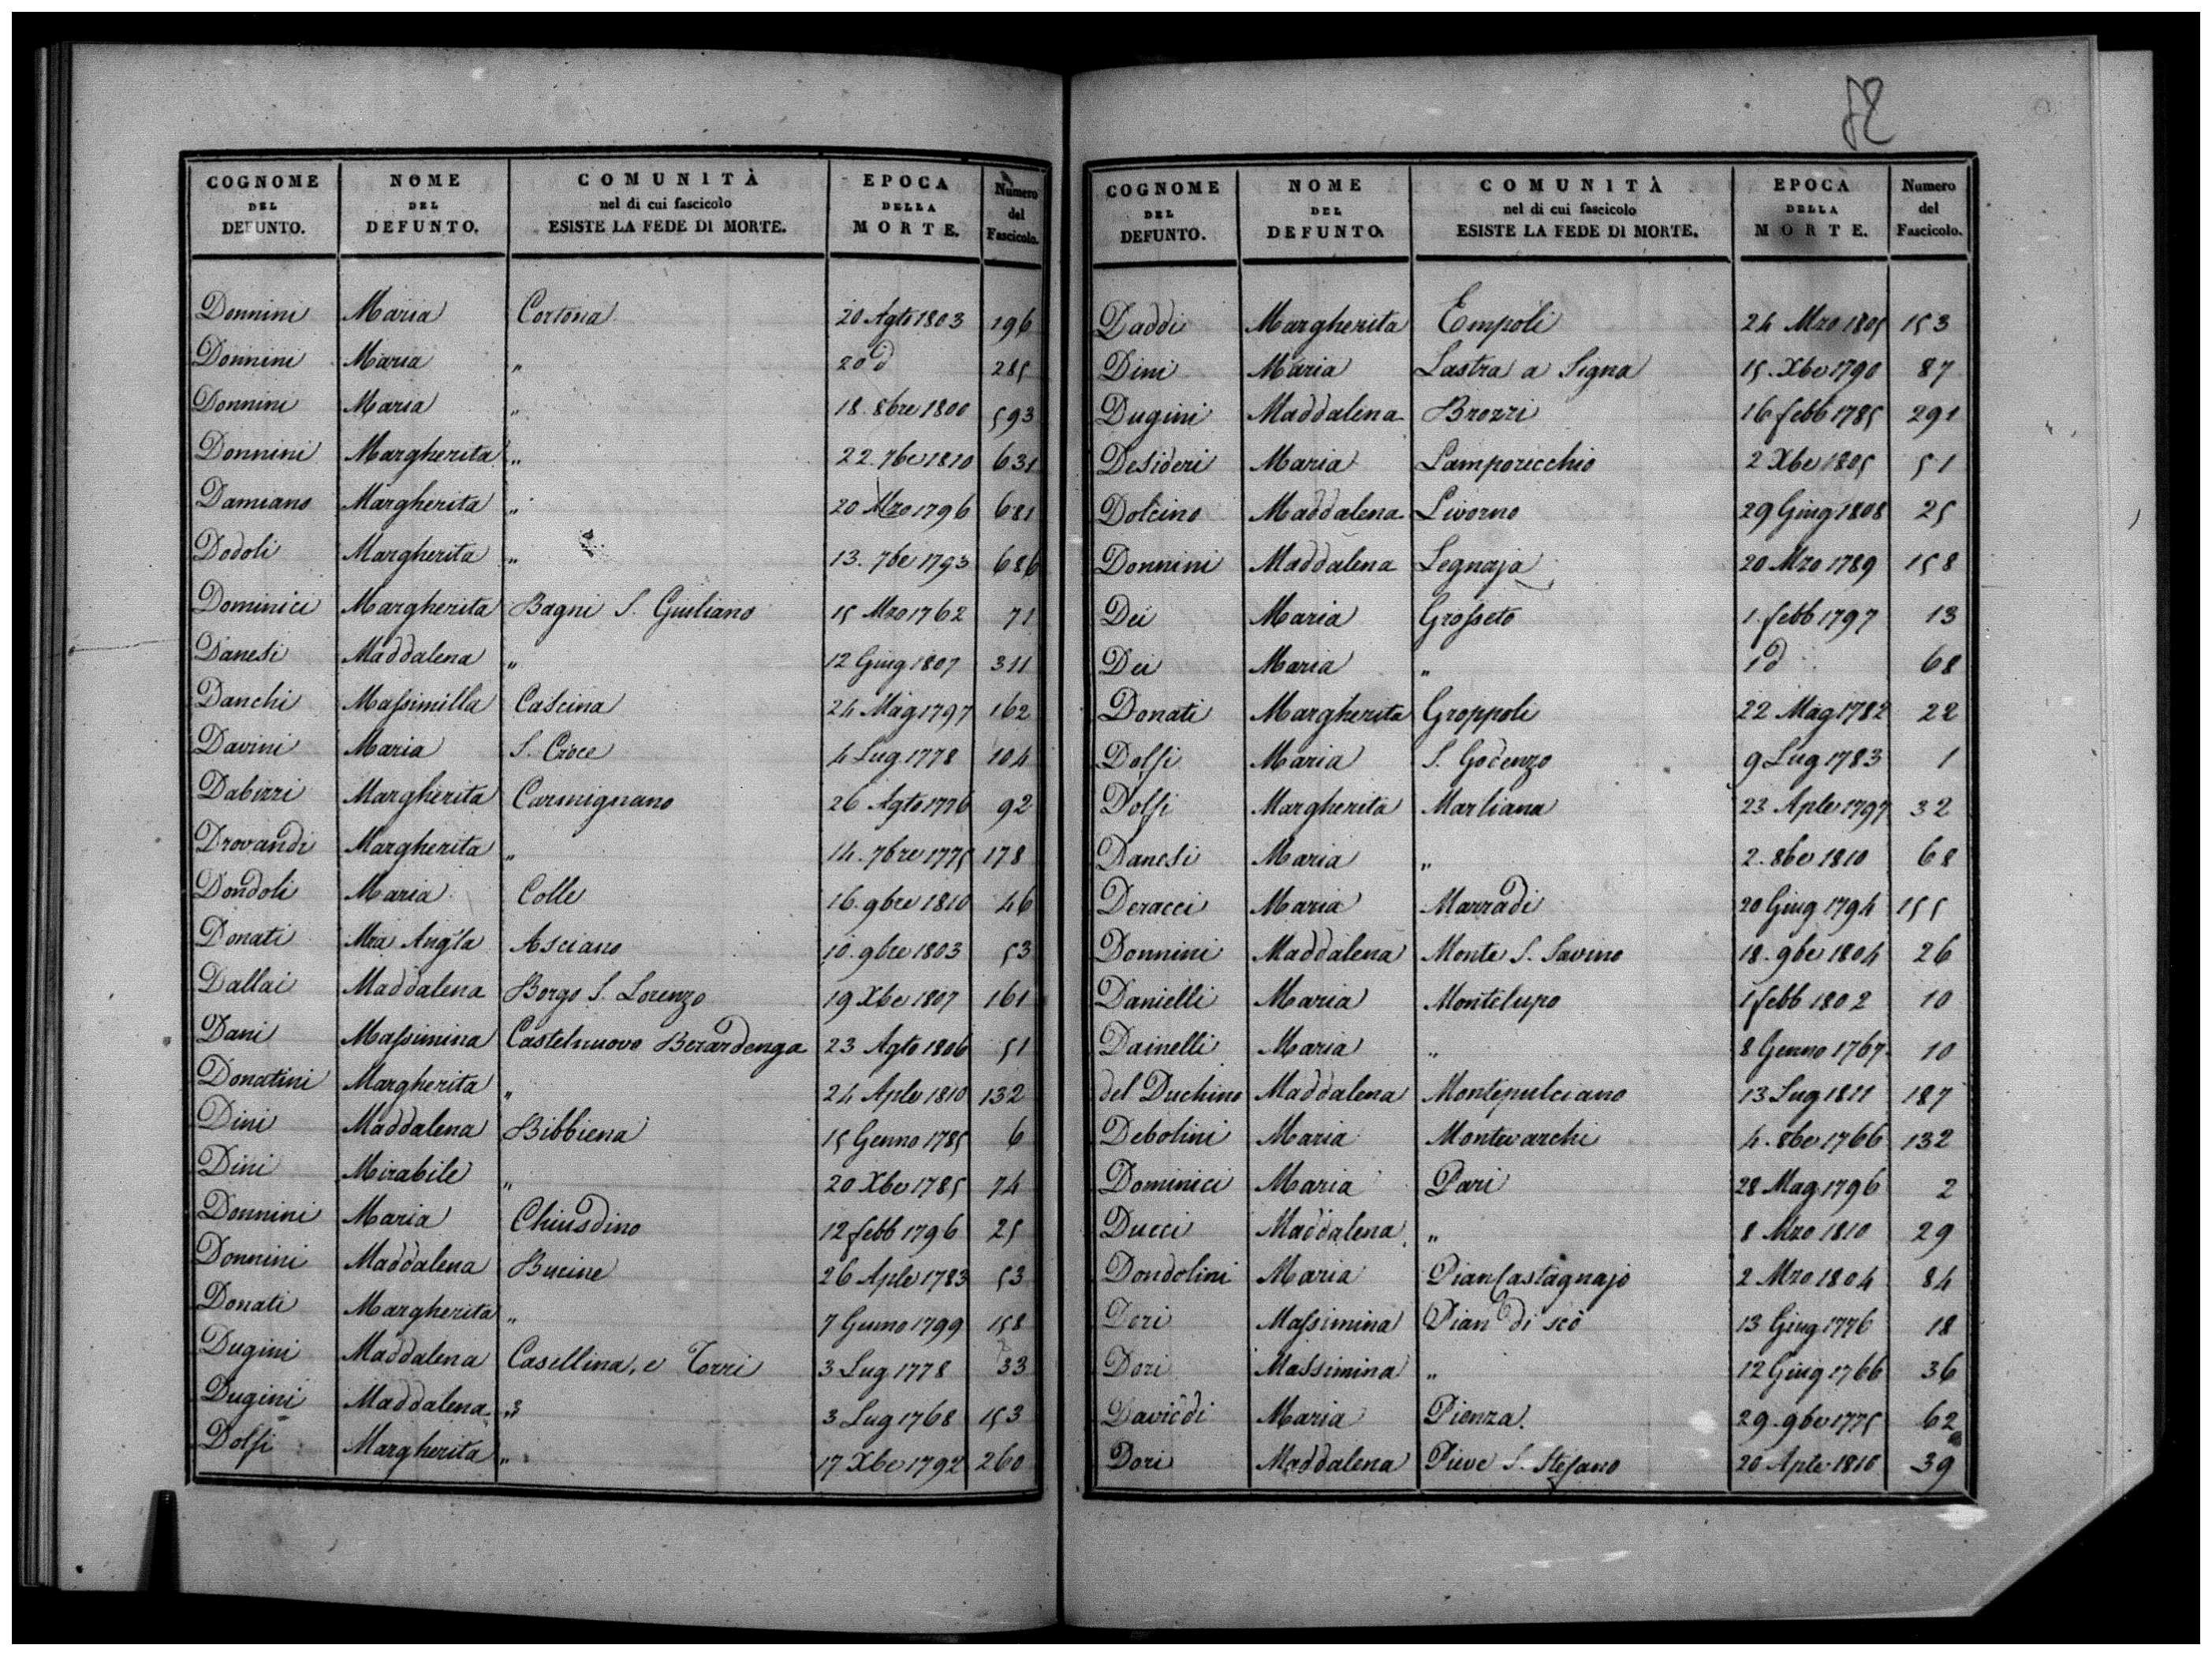 COGNOME DEL DEFUNTO. NOME DEL DEFUNTO. COMUNITÀ nel di cui fascicolo ESISTE LA FEDE DI MORTE. EPOCA DELLA MORTE. Numero del Fascicolo.
Donnini Maria Cortona 20 Agto 1803 196
Donnini Maria " 20 d 285
Donnini Maria " 18. 8bre 1800 593
Donnini Margherita " 22. 7be 1810 631
Damiano Margherita " 20 Mzo 1796 681
Dodoli Margherita " 13. 7be 1793 686
Dominici Margherita Bagni S. Giuliano 15 Mzo 1762 71
Danesi Maddalena " 12 Giug 1807 311
Danchi Massimilla Cascina 24 Mag 1797 162
Davini Maria S. Croce 4 Lug 1778 104
Dabizzi Margherita Carmignano 26 Agto 1776 92
Drovandi Margherita " 14. 7bre 1775 178
Dondoli Maria Colle 16. 9bre 1810 46
Donati Mra Ang'la Asciano 10. 9bre 1803 53
Dallai Maddalena Borgo S. Lorenzo 19 Xbe 1807 161
Dani Massimina Castelnuovo Berardenga 23 Agto 1806 51
Donatini Margherita " 24 Aple 1810 132
Dini Maddalena Bibbiena 15 Genno 1785 6
Dini Mirabile " 20 Xbe 1785 74
Donnini Maria Chiusdino 12 febb 1796 25
Donnini Maddalena Bucine 26 Aple 1783 53
Donati Margherita " 7 Genno 1799 158
Dugini Maddalena Casellina, e Torri 3 Lug 1778 33
Dugini Maddalena " 3 Lug 1768 153
Dolfi Margherita " 17 Xbe 1792 260
52
COGNOME DEL DEFUNTO. NOME DEL DEFUNTO. COMUNITÀ nel di cui fascicolo ESISTE LA FEDE DI MORTE. EPOCA DELLA MORTE. Numero del Fascicolo.
Daddi Margherita Empoli 24 Mzo 1805 153
Dini Maria Lastra a Signa 15. Xbe 1790 87
Dugini Maddalena Brozzi 16 febb 1785 291
Desideri Maria Lamporecchio 2 Xbe 1805 51
Dolcino Maddalena Livorno 29 Giug 1808 25
Donnini Maddalena Legnaja 20 Mzo 1789 158
Dei Maria Grosseto 1. febb 1797 13
Dei Maria " 1 d 68
Donati Margherita Groppoli 22 Mag 1782 22
Dolfi Maria S. Godenzo 9 Lug 1783 1
Dolfi Margherita Marliana 23 Aple 1797 32
Danesi Maria " 2. 8be 1810 68
Deracci Maria Marradi 20 Giug 1794 155
Donnini Maddalena Monte S. Savino 18. 9be 1804 26
Danielli Maria Montelupo 1 febb 1802 10
Dainelli Maria " 8 Genno 1767 10
del Duchino Maddalena Montepulciano 13 Lug 1811 187
Debolini Maria Montevarchi 4. 8be 1766 132
Dominici Maria Pari 28 Mag 1796 2
Ducci Maddalena " 8 Mzo 1810 29
Dondolini Maria PianCastagnajo 2 Mzo 1804 84
Dori Massimina Pian di scò 13 Giug 1776 18
Dori Massimina " 12 Giug 1766 36
Daviddi Maria Pienza 29. 9be 1775 62
Dori Maddalena Pieve S. Stefano 20 Aple 1810 39